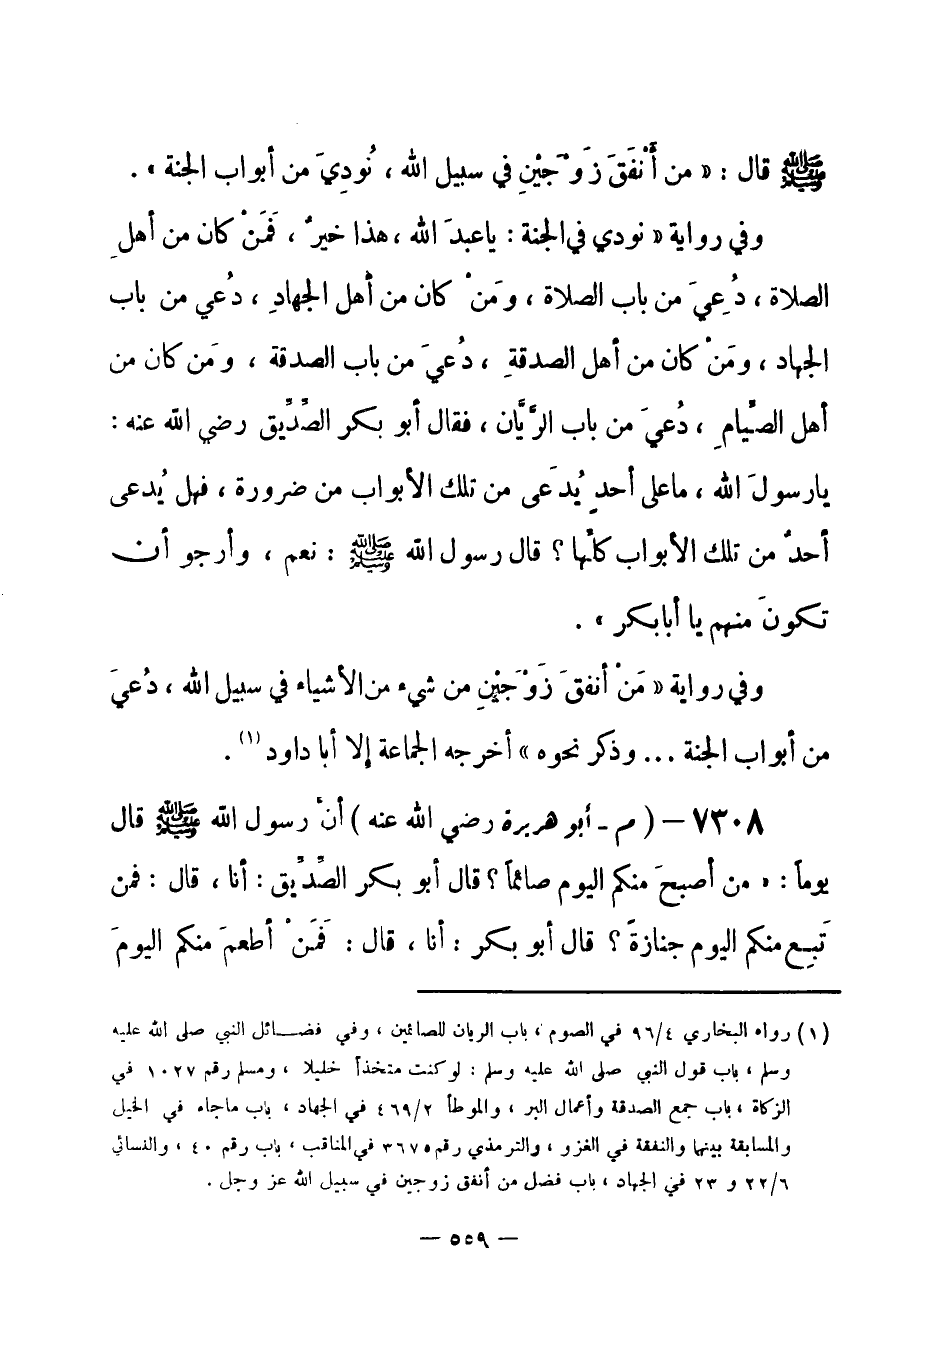 ﷺ قال : « من أَنْفَقَ زَوْجَيْنِ في سبيل الله ، نُودِيَ من أبواب الجنة » .
وفي رواية « نودي في الجنة : ياعبدَ الله ، هذا خيرٌ ، فَمَنْ كان من أهلِ
الصلاة ، دُعِيَ من باب الصلاة ، ومَنْ كان من أهل الجهادِ ، دُعي من باب
الجهاد ، ومَنْ كان من أهل الصدقةِ ، دُعيَ من باب الصدقة ، ومَن كان من
أهل الصِّيامِ ، دُعيَ من باب الرَّيَّان ، فقال أبو بكر الصِّدِّيق رضي الله عنه :
يارسولَ الله ، ماعلى أحدٍ يُدعَى من تلك الأبواب من ضرورة ، فهل يُدعى
أحدٌ من تلك الأبواب كلِّها ؟ قال رسول الله ﷺ : نعم ، وأرجو أن
تكونَ منهم يا أبابكر » .
وفي رواية « مَنْ أنفقَ زَوْجَيْنِ من شيء من الأشياء في سبيل الله ، دُعيَ
من أبواب الجنة ... وذكر نحوه » أخرجه الجماعة إلا أبا داود (١) .
٧٣٠٨ – ( م - أبو هريرة رضي الله عنه ) أنَّ رسول الله ﷺ قال
يوماً : « من أصبحَ منكم اليوم صائماً ؟ قال أبو بكر الصِّدِّيق : أنا ، قال : فمن
تَبِعَ منكم اليوم جنازةً ؟ قال أبو بكر : أنا ، قال : فَمَنْ أطعمَ منكم اليومَ
(١) رواه البخاري ٩٦/٤ في الصوم ، باب الريان للصائمين ، وفي فضائل النبي صلى الله عليه
وسلم ، باب قول النبي صلى الله عليه وسلم : لو كنت متخذاً خليلا ، ومسلم رقم ١٠٢٧ في
الزكاة ، باب جمع الصدقة وأعمال البر ، والموطأ ٤٦٩/٢ في الجهاد ، باب ماجاء في الخيل
والمسابقة بينها والنفقة في الغزو ، والترمذي رقم ٣٦٧٥ في المناقب ، باب رقم ٤٠ ، والنسائي
٢٢/٦ و ٢٣ في الجهاد ، باب فضل من أنفق زوجين في سبيل الله عز وجل .
— ٥٥٩ —